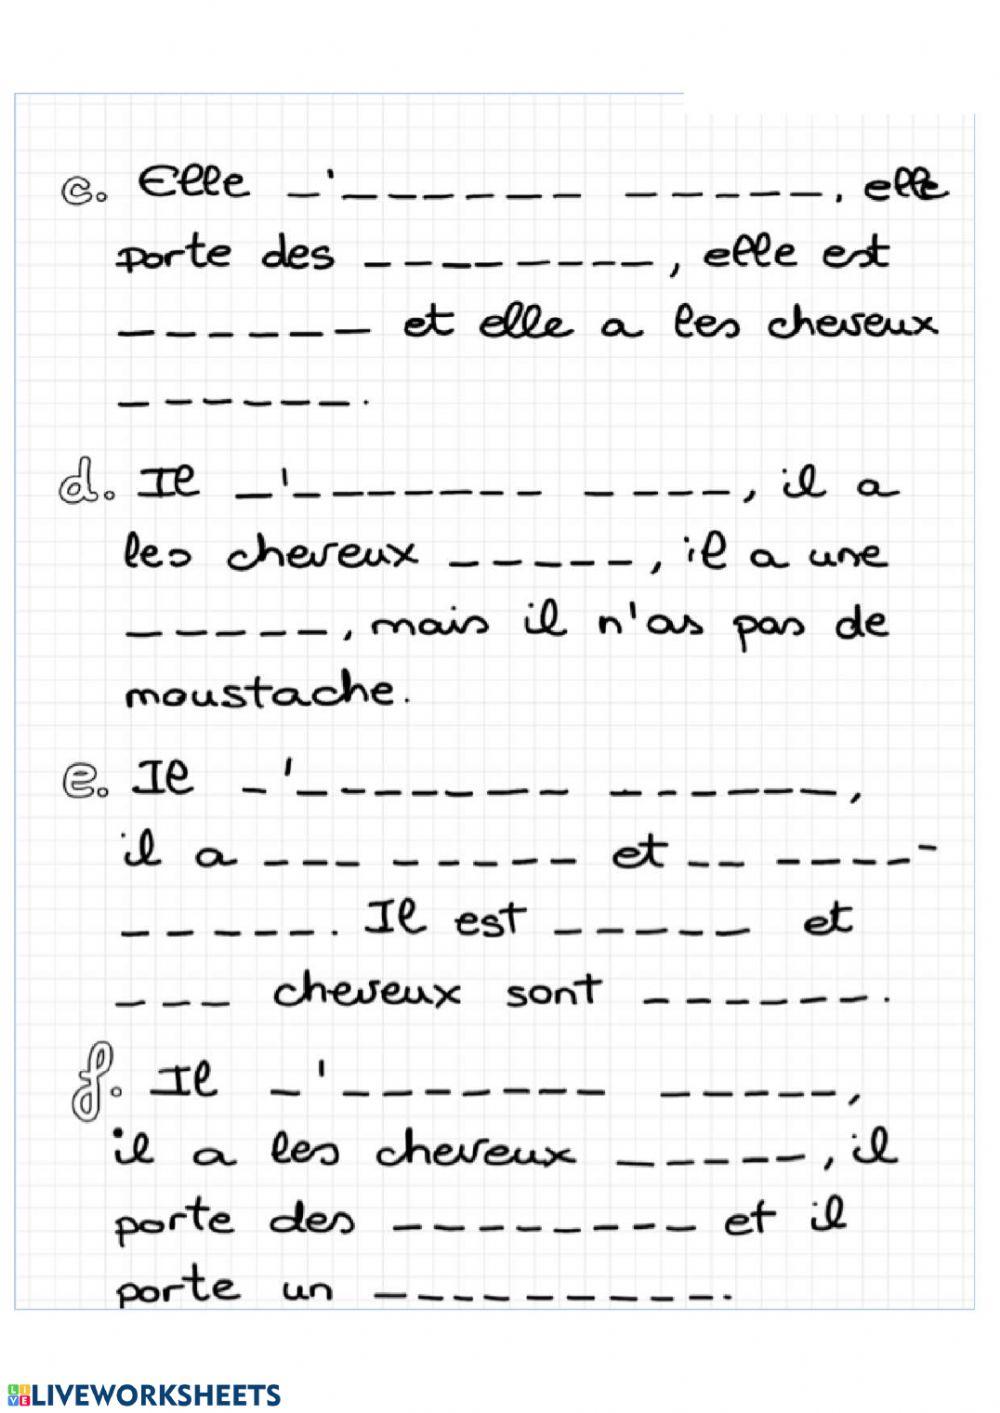 c. Elle _'______ _____, elle
porte des ________, elle est
______ et elle a les cheveux
______.
d. Il _'_______ ____, il a
les cheveux _____, il a une
_____, mais il n'as pas de
moustache.
e. Il _'_______ ______,
il a ___ _____ et __ ____-
______. Il est _____ et
___ cheveux sont ______.
f. Il _'_______ _____,
il a les cheveux _____, il
porte des ________ et il
porte un _________.
LIVEWORKSHEETS